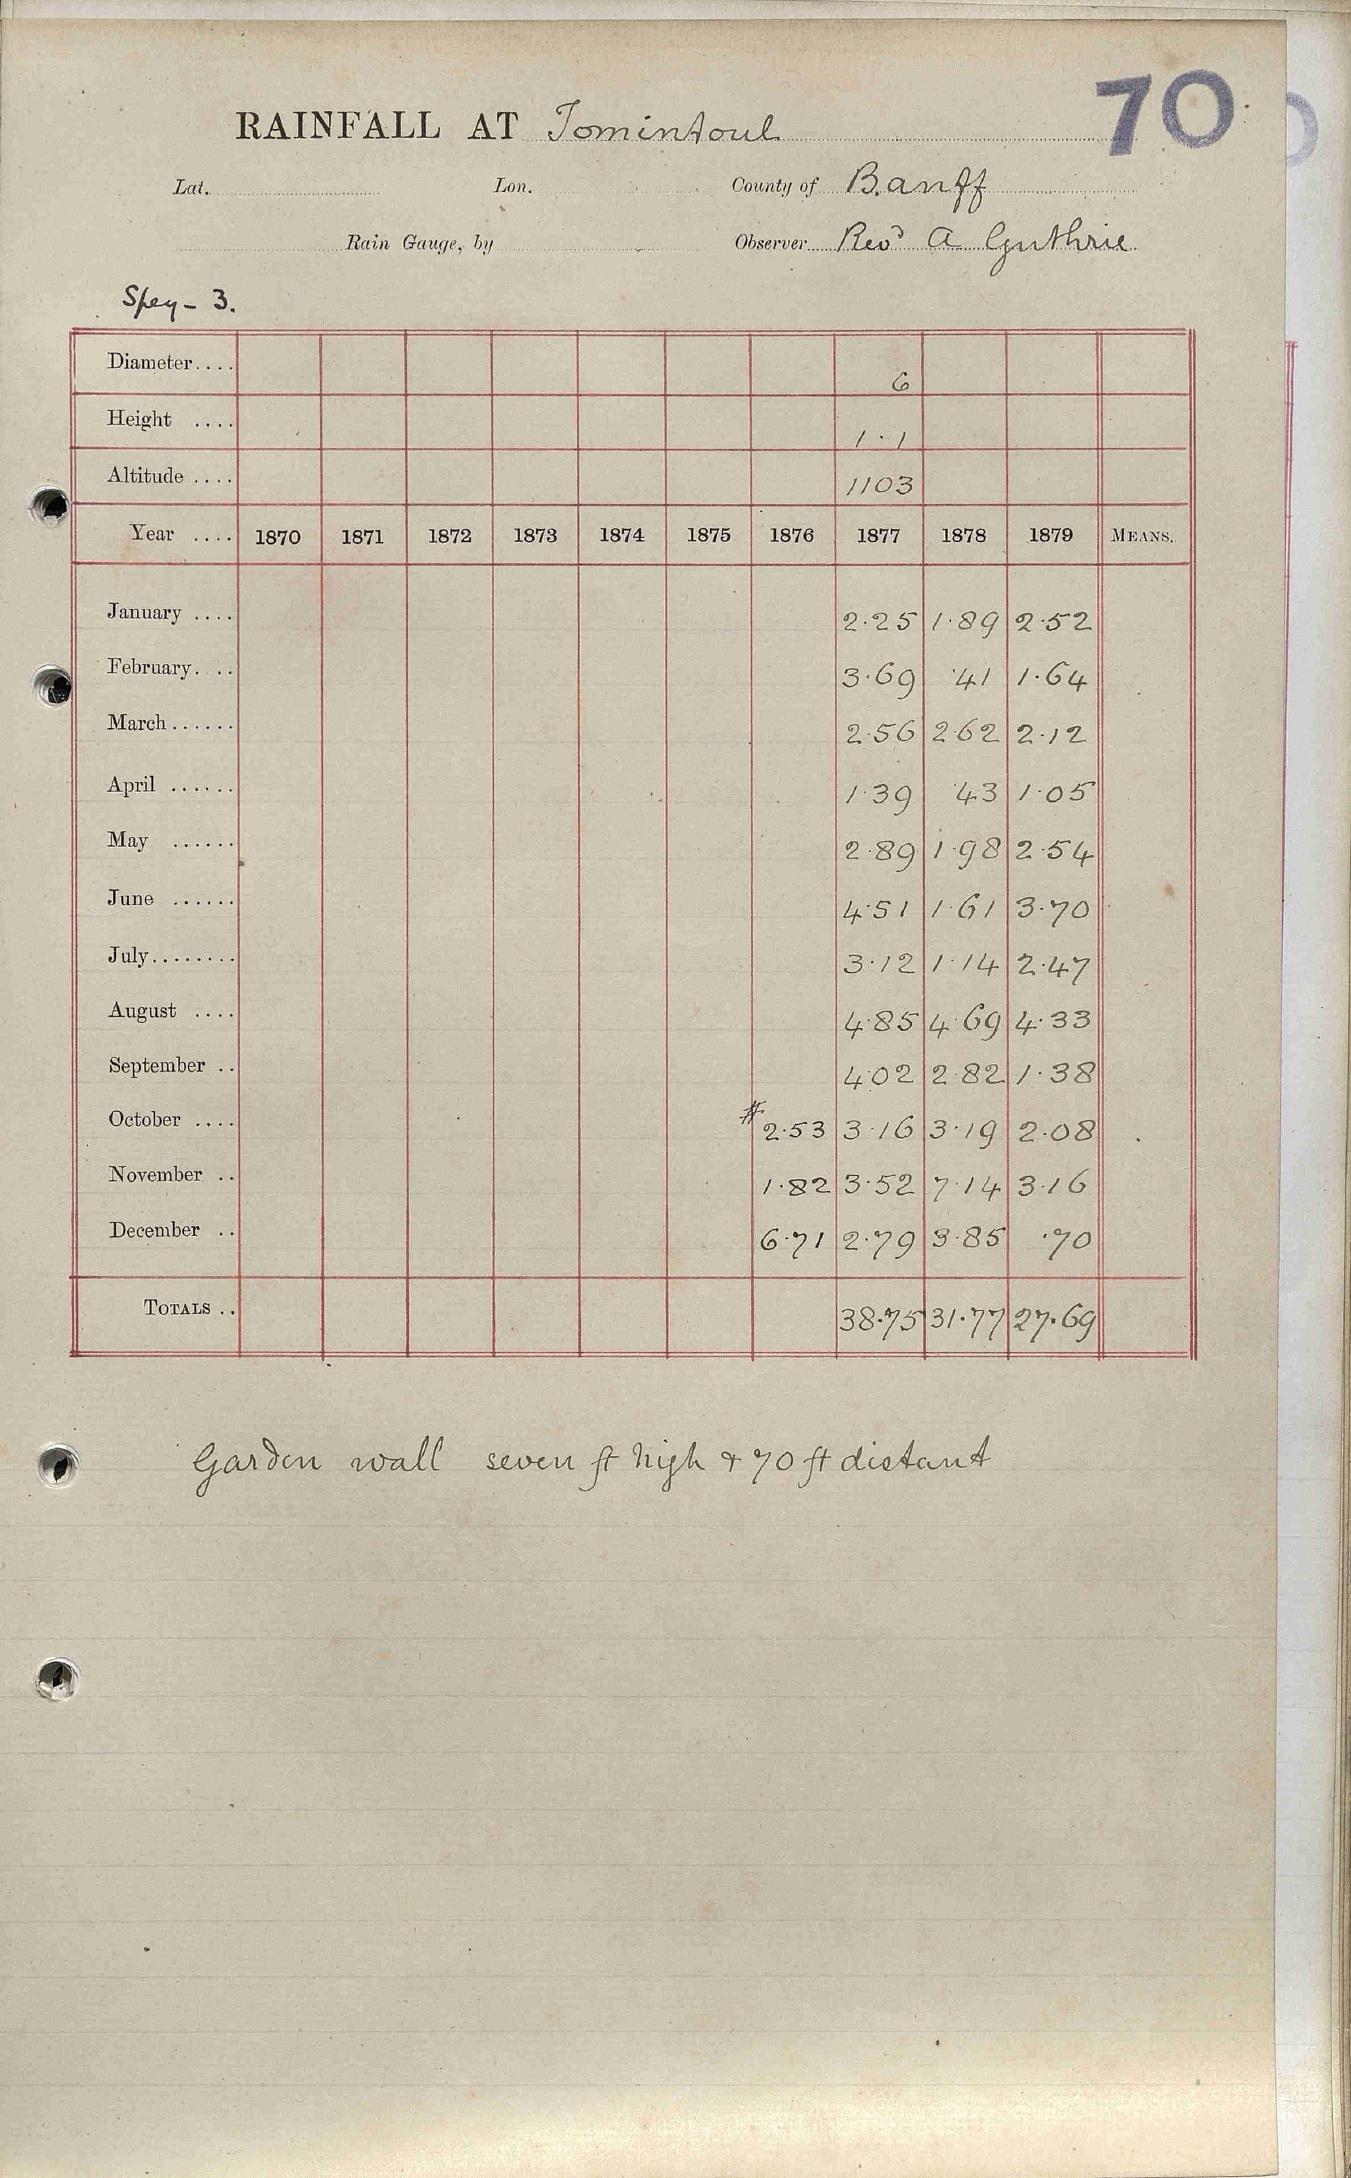 70
RAINFALL AT Tomintoul
Lat. Lon. County of Banff
Rain Gauge, by Observer Revd A Guthrie
Spey - 3.
Diameter.... 6
Height .... 1.1
Altitude .... 1103
Year .... 1870 1871 1872 1873 1874 1875 1876 1877 1878 1879 MEANS.
January .... 2.25 1.89 2.52
February. .. 3.69 .41 1.64
March...... 2.56 2.62 2.12
April ...... 1.39 .43 1.05
May ...... 2.89 1.98 2.54
June ...... 4.51 1.61 3.70
July........ 3.12 1.14 2.47
August .... 4.85 4.69 4.33
September .. 4.02 2.82 1.38
October .... # 2.53 3.16 3.19 2.08
November .. 1.82 3.52 7.14 3.16
December .. 6.71 2.79 3.85 .70
TOTALS .. 38.75 31.77 27.69
Garden wall seven ft high & 70 ft distant